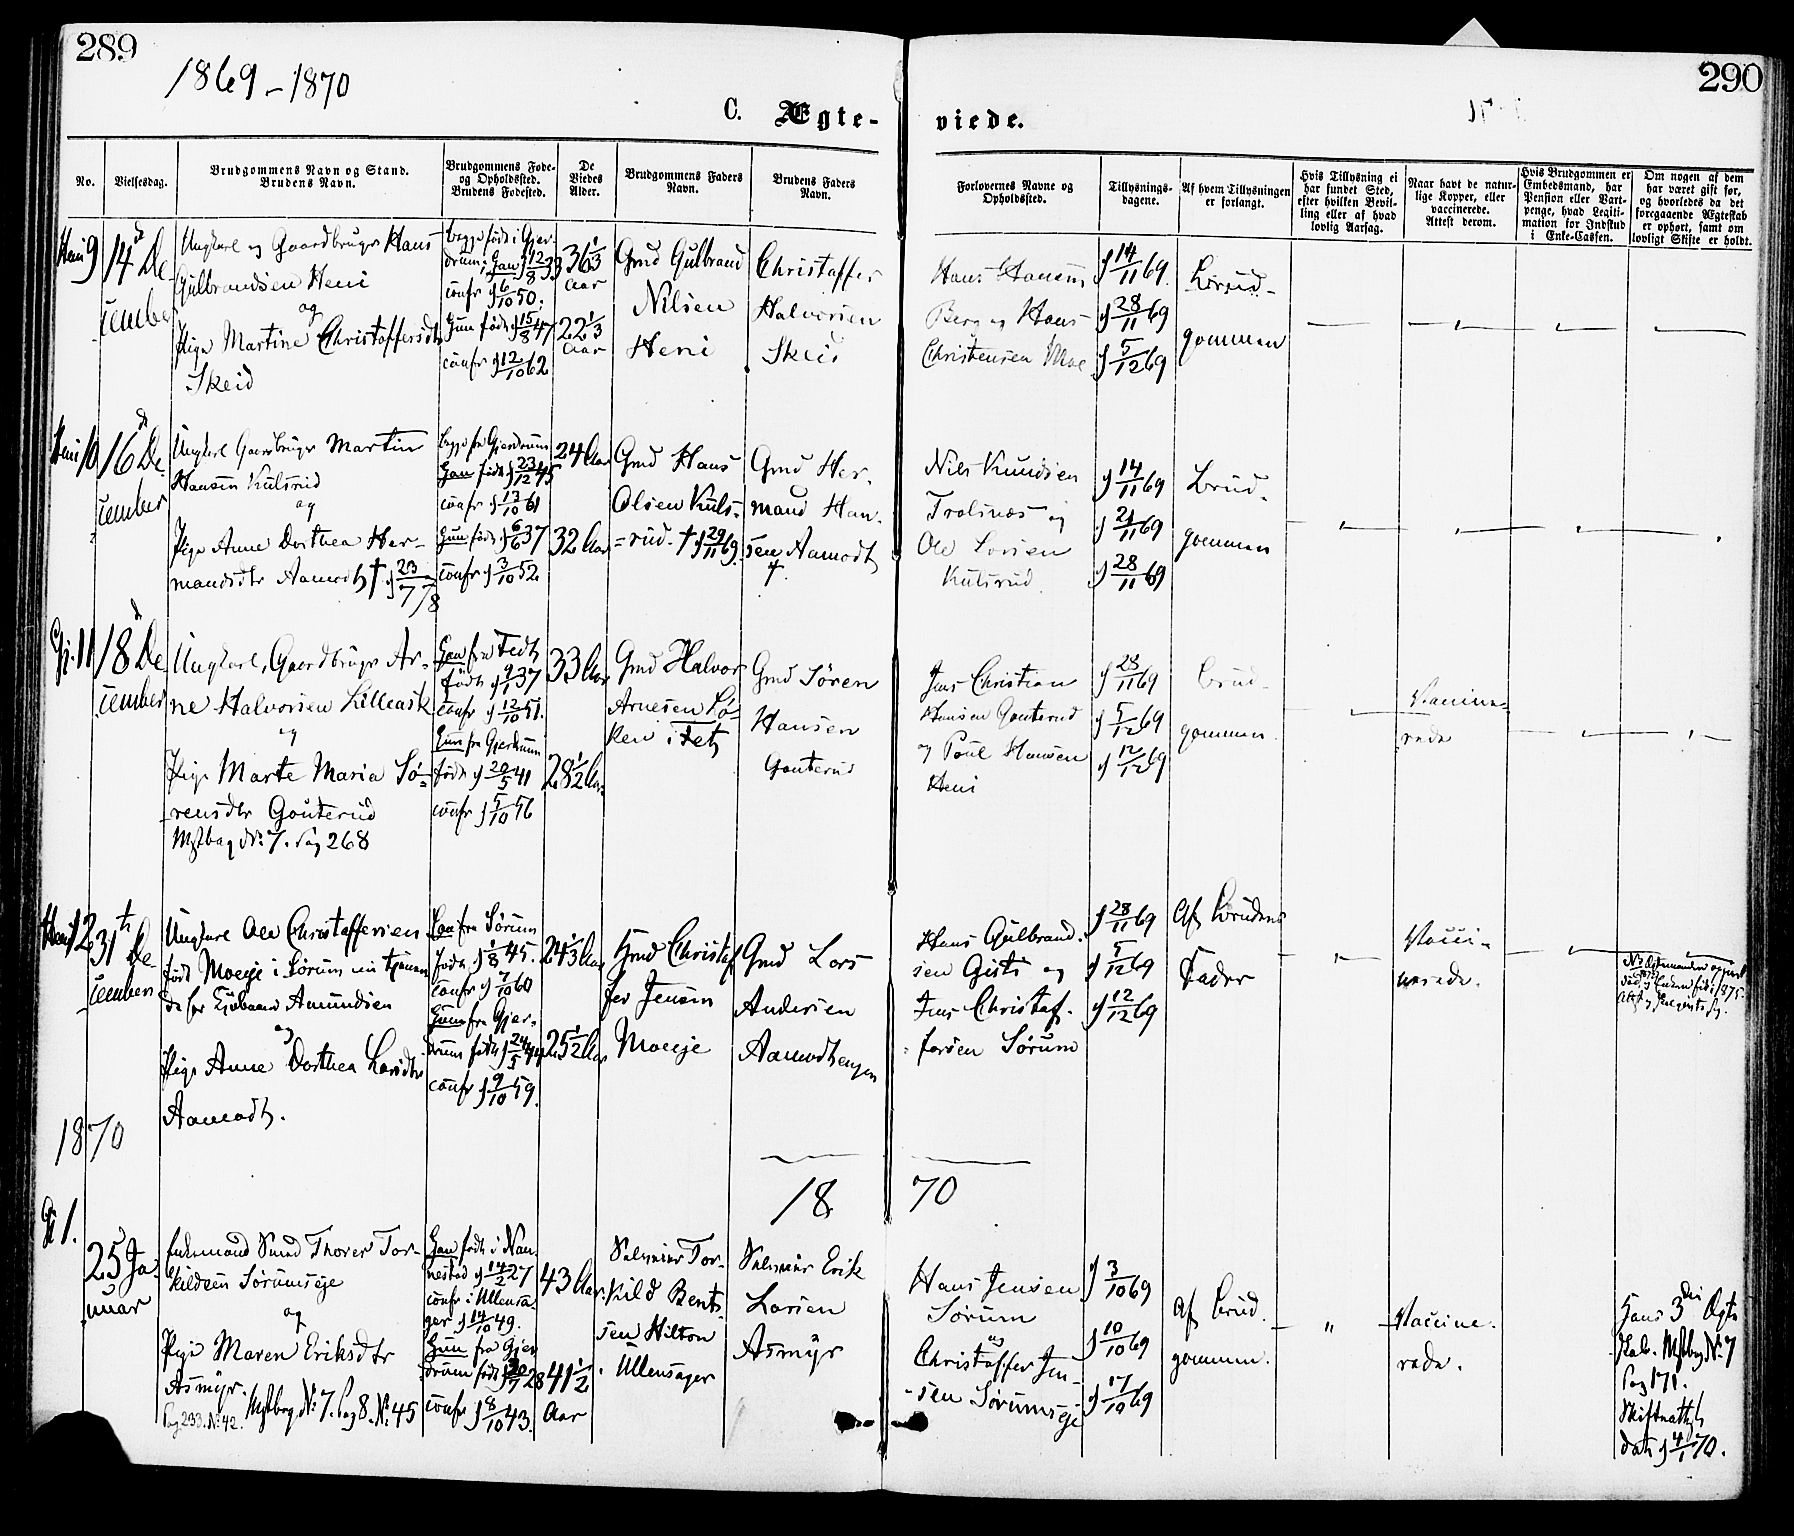 289
290
1869-1870
C. Ægte-
viede.
No.
Vielsesdag.
Brudgommens Navn og Stand.
Brudens Navn.
Brudgommens Føde-
og Opholdssted.
Brudens Fødested.
De
Viedes
Alder.
Brudgommens Faders
Navn.
Brudens Faders
Navn.
Forlovernes Navne og
Opholdssted.
Tillysnings-
dagene.
Af hvem Tillysningen
er forlangt.
Hvis Tillysning ei
har fundet Sted,
efter hvilken Bevil-
ling eller af hvad
lovlig Aarsag.
Naar havt de natur-
lige Kopper, eller
vaccinerede.
Attest derom.
Hvis Brudgommen er
Embedsmand, har
Pension eller Vart-
penge, hvad Legiti-
mation for Indskud
i Enke-Cassen.
Om nogen af dem
har været gift før,
og hvorledes da det
foregaaende Ægteskab
er ophørt, samt om
lovligt Skifte er holdt.
Heni 9
14 De
cember
Ungkarl og Gaardbruger Hans
Gulbrandsen Heni
og
Pige Martine Christoffersdtr
Skeid
begge født i Gjer-
drum. Han 12/8 33
confr 6/10 50.
Hun født 15/8 47
confr 12/10 62
36 1/3
Aar
22 1/3
Aar
Gmd Gulbrand
Nilsen
Heni
Christoffer
Halvorsen
Skeid
Hans Hansen
Berg og Hans
Christensen Moe
14/11 69.
28/11 69
5/12 69
Brud-
gommen
Heni 10
16 De
cember
Ungkarl Gaardbruger Martin
Hansen Kulsrud
og
Pige Anne Dorthea Her-
mandsdtr Aamodt † 23/7 78
begge fra Gjerdrum
Han født 23/12 45
confr 13/10 61
Hun født 6/6 37
confr 3/10 52.
24 Aar
32 Aar
Gmd Hans
Olsen Kuls-
rud. † 29/11 69.
Gmd Her-
mand Han-
sen Aamodt
†
Nils Knudsen
Trolsnes og
Ole Larsen
Kulsrud
14/11 69
21/11 69
28/11 69
Brud-
gommen
Gj. 11
18 De
cember
Ungkarl, Gaardbruger Ar-
ne Halvorsen Lilleask
og
Pige Marte Maria Sø-
rensdtr Gouterud
Mstbog Nr. 7. Pag 268
Han fra Fedt
født 9/1 37
confr 12/10 51.
Hun fra Gjerdrum
født 20/5 41
confr 5/10 56
33 Aar
28 1/2 Aar
Gmd Halvor
Arnesen Lø-
ken i Fet
Gmd Søren
Hansen
Gouterud
Jens Christian
Hansen Gouterud
og Poul Hansen
Heni
28/11 69
5/12 69
12/12 69
Brud-
gommen
Vaccine-
rede
Heni 12
31te De
cember
Ungkarl Ole Christoffersen
født Moeeje i Sørum nu tjenen
de for Amundsen
og
Pige Anne Dorthea Larsdtr
Aamodt.
Han fra Sørum
født 1/8 45.
confr 7/10 60
Hun fra Gjer-
drum født 24/5 44
confr 9/10 59.
24 1/3 Aar
25 1/2 Aar
Gmd Christof
fer Jensen
Moeeje
Gmd Lars
Andersen
Aamodtengen
Hans Gulbrand-
sen Gisti og
Jens Christof-
fersen Sørum
28/11 69
5/12 69
12/12 69
Af Brudens
Fader
Vacci-
nerede.
1870
18 70
Gj 1.
25 Ja-
nuar
Enkemand Smed Thorer Tor-
kildsen Sørumseje
og
Pige Maren Eriksdtr
Asmyr.
Pag 233. Nr 42. Mstbog Nr. 7. Pag 8. Nr. 45
Han født i Nan-
nestad 14/2 27
confr i Ullensa-
ger 14/10 49.
Hun fra Gjer
drum født 20/7 28
confr 8/10 43.
43 Aar
41 1/2
Aar
Tor-
kild Bent-
sen Hilton
Ullensager
Erik
Larsen
Asmyr
Hans Jensen
Sørum
og
Christoffer Jen-
sen Sørumseje
3/10 69
10/10 69
17/10 69
Af Brud-
gommen.
"
Vaccine-
rede.
Hans 3die Ægte
skab. Mstbog Nr. 7
Pag 171.
Skifteattest
dat. 4/1 70.